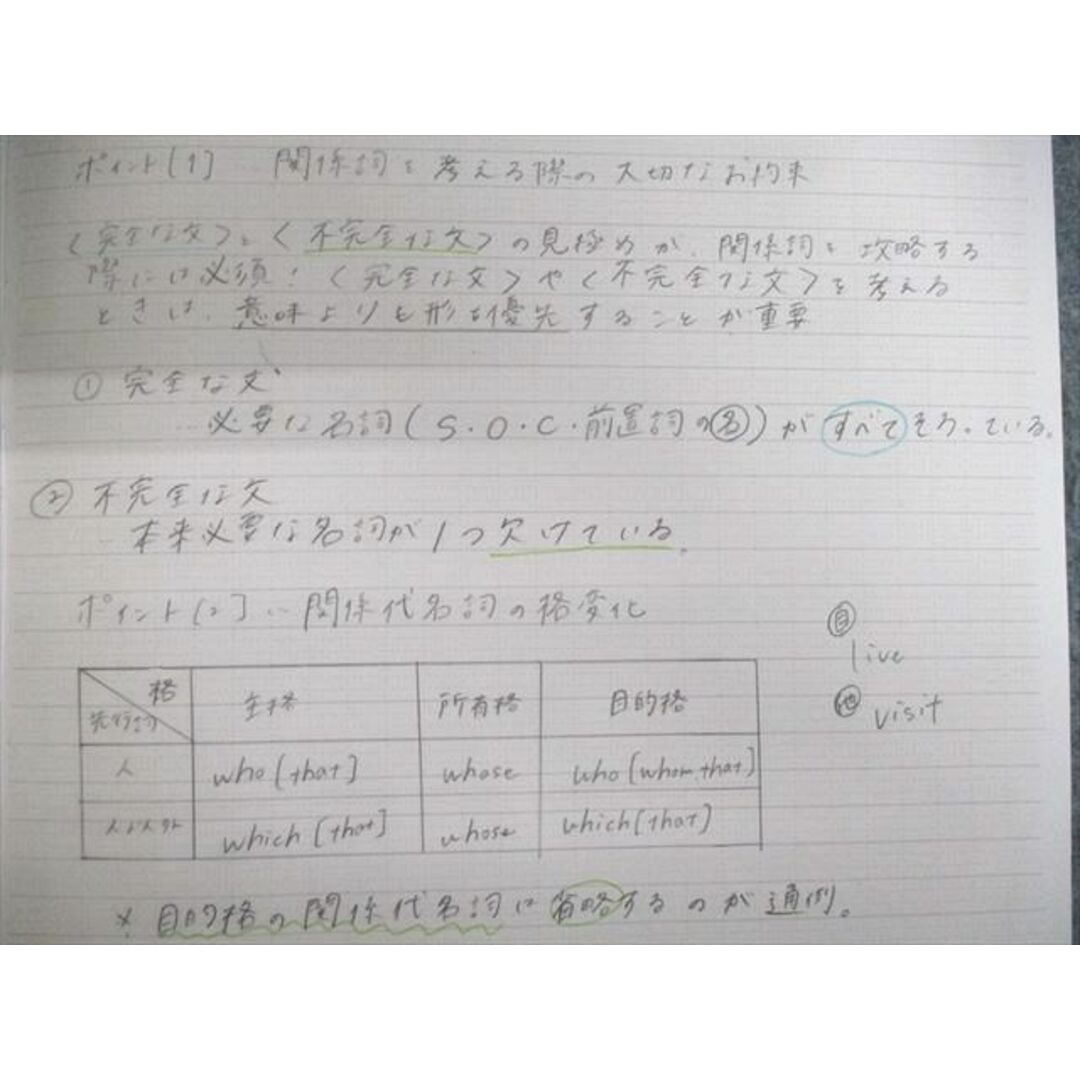 ポイント[1] 関係詞を考える際の大切なお約束
〈完全な文〉と〈不完全な文〉の見極めが、関係詞を攻略する
際には必須!〈完全な文〉や〈不完全な文〉を考える
ときは、意味よりも形を優先することが重要
① 完全な文
必要な名詞(S・O・C・前置詞の名)がすべてそろっている。
② 不完全な文
本来必要な名詞が1つ欠けている。
ポイント[2] 関係代名詞の格変化
自
live
他
visit
格 主格 所有格 目的格
先行詞
人 who [that] whose who [whom that]
人以外 which [that] whose which [that]
※ 目的格の関係代名詞は省略するのが通例。